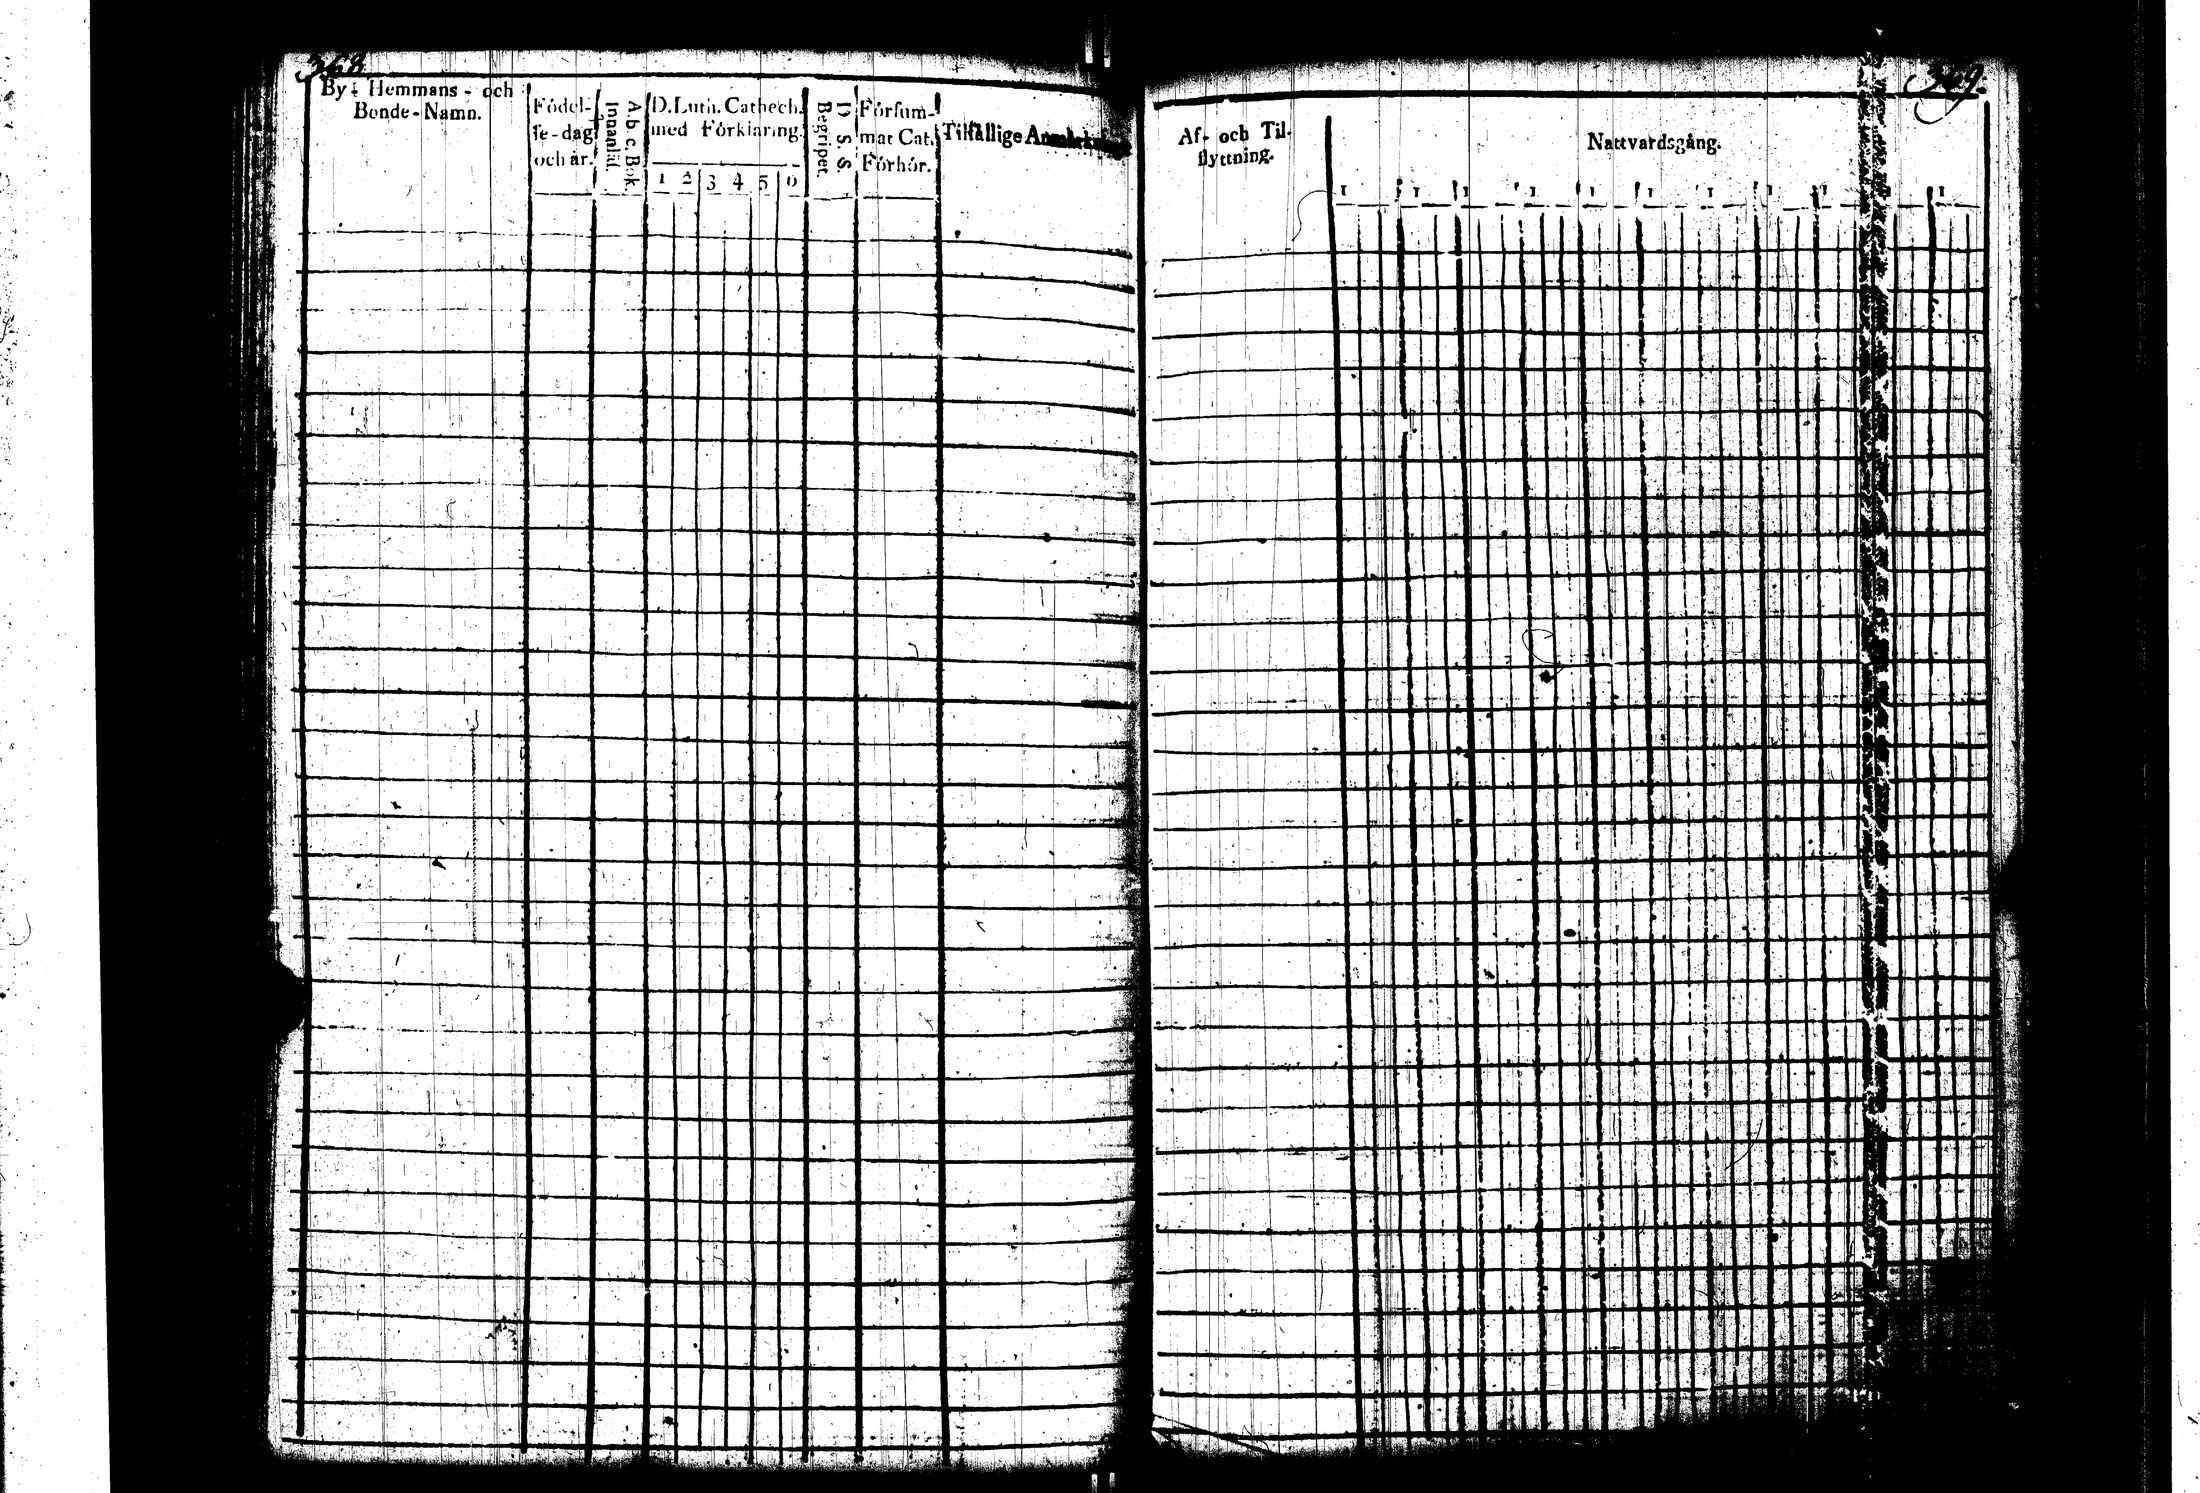 368.
By- Hemmans- och
Bonde-Namn.
Födel-
se-dag
och år.
A. b. c. Bok.
Innanläs.
D. Luth. Cathech.
med Förklaring.
1 2 3 4 5 6
D. S. S.
Begripet.
Försum-
mat Cat.
Förhör.
Tilfällige Anmärkningar
369.
Af- och Til-
flyttning.
Nattvardsgång.
1 1 1 1 1 1 1 1 1 1